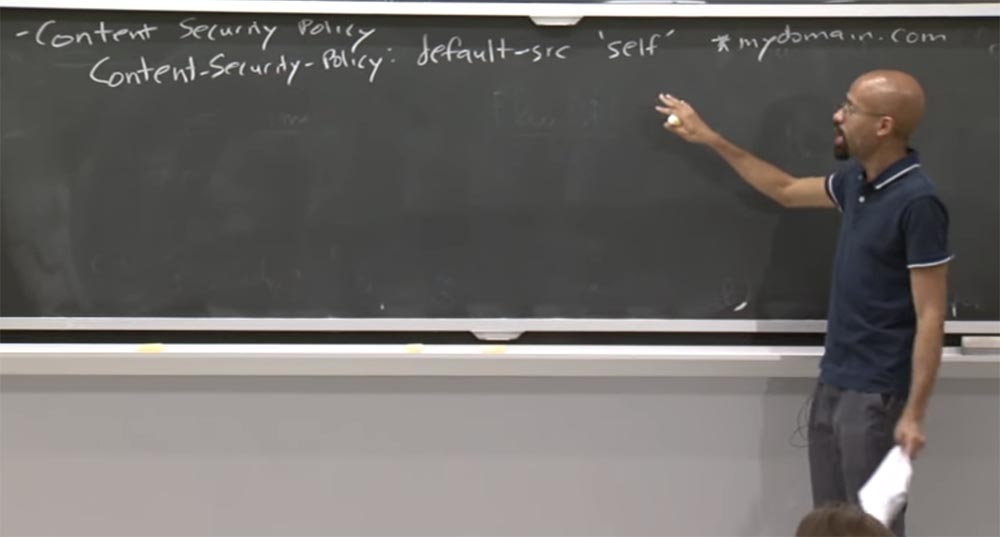 - Content Security Policy
Content-Security-Policy: default-src 'self' *mydomain.com